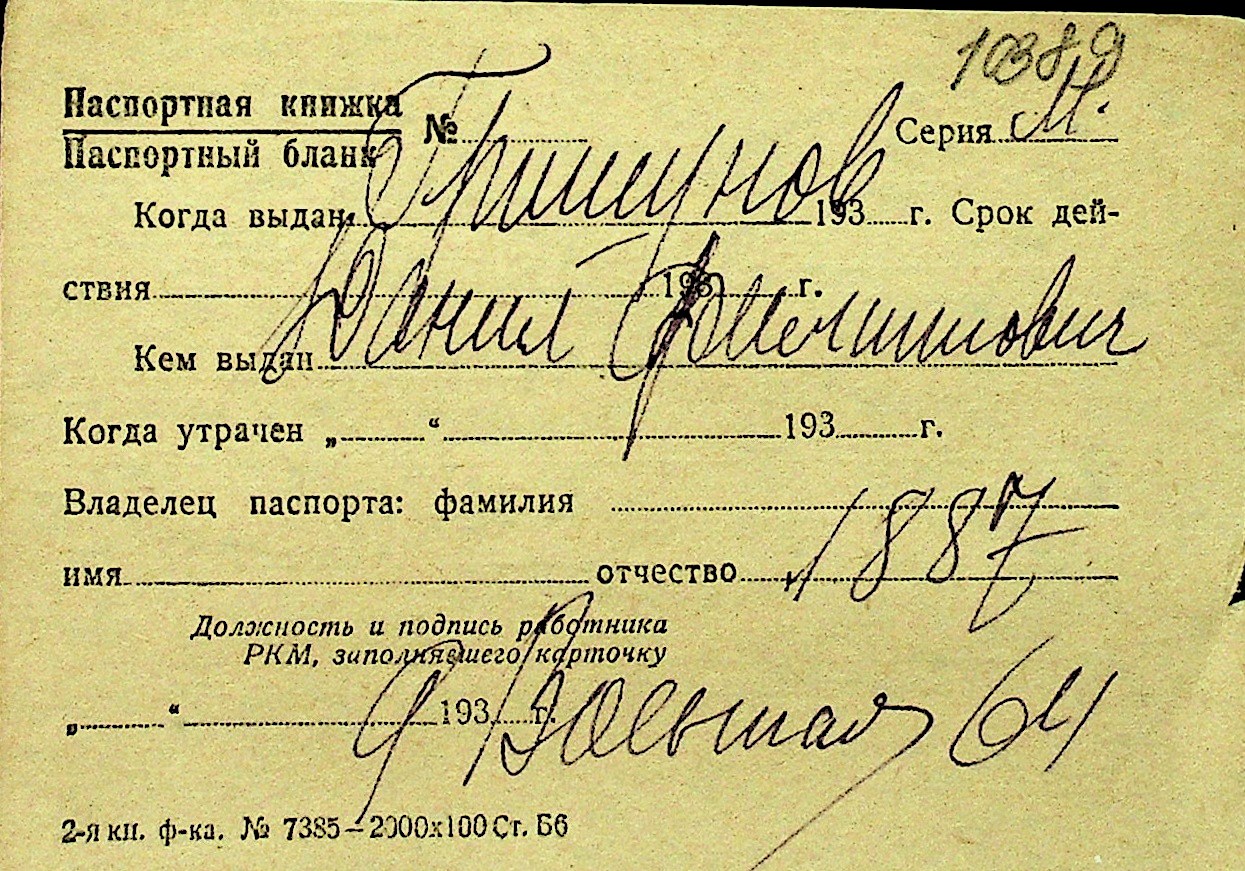 1038 9
Паспортная книжка
Паспортный бланк № Серия М.
Гришунов
Когда выдан 193 г. Срок дей-
ствия 193 г.
Данил
Кем выдан
Когда утрачен „ “ 193 г.
Владелец паспорта: фамилия
1887
имя отчество
Должность и подпись работника
РКМ, заполнявшего карточку
Вольная 64
„ “ 193 г.
2-я кн. ф-ка. № 7385—2000х100 Ст. Б6